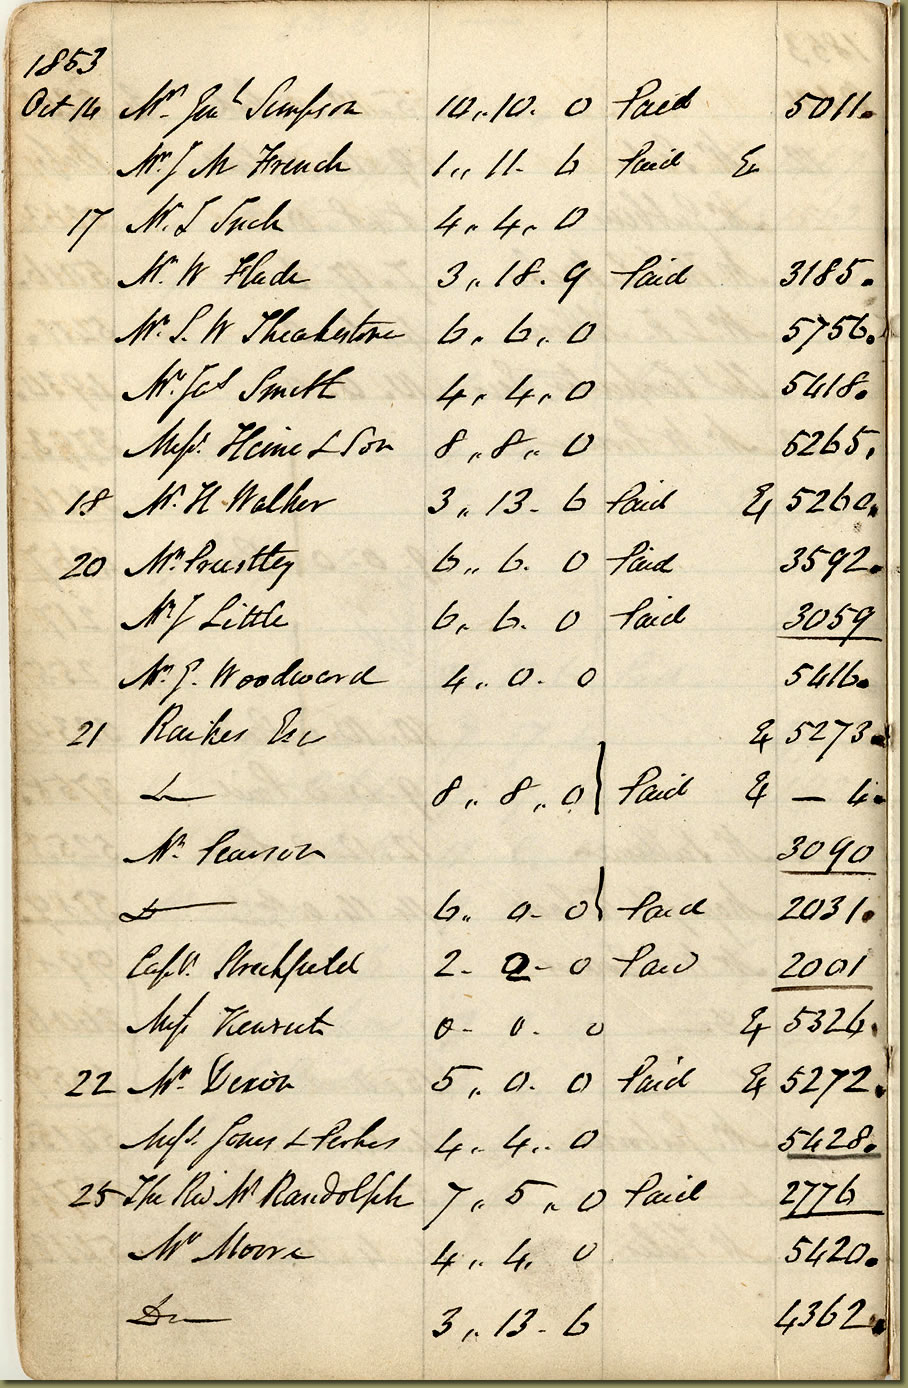 1853
Oct 14 Mr Jno Simpson 10,,10. 0 Paid 5011.
Mr J M French 1,, 11- 6 Paid &
17 Mr. J Such 4,, 4,, 0
Mr. W Flude 3,, 18. 9 Paid 3185.
Mr. S. W Theakestone 6,, 6,, 0 5756.
Mr. Jas Smith 4,, 4,, 0 5418.
Messrs. Heine & Son 8,, 8,, 0 5265.
18 Mr. H Walker 3,, 13- 6 Paid & 5260.
20 Mr Priestley 6,, 6. 0 Paid 3592.
Mr J Little 6,, 6. 0 Paid 3059
Mr. Woodward 4,. 0. 0 5416.
21 Raikes Esq & 5273.
Do 8,, 8,, 0 } Paid & — 4.
Mr. Pearson 3090
Do 6,, 0- 0 } Paid 2031.
Capt. 2- 2- 0 Paid 2001
Miss 0- 0. 0 & 5324.
22 Mr. Dixon 5,, 0. 0 Paid & 5272.
Messrs. Jones & Perkes 4,, 4,, 0 5428.
25 The Revd Mr Randolph 7,, 5,, 0 Paid 2776
Mr Moore 4,, 4. 0 5420.
Do 3,, 13- 6 4362.